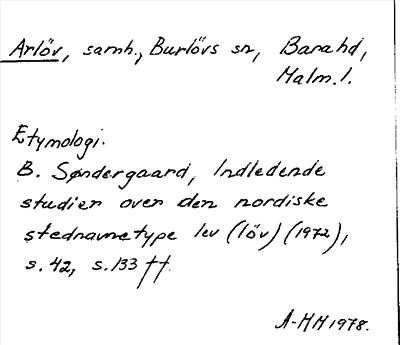 Arlöv, samh., Burlövs sn, Bara hd,
Malm. l.
Etymologi.
B. Søndergaard, Indledende
studier over den nordiske
stednavnetype lev (löv) (1972),
s. 42, s. 133 ff.
A-HH 1978.